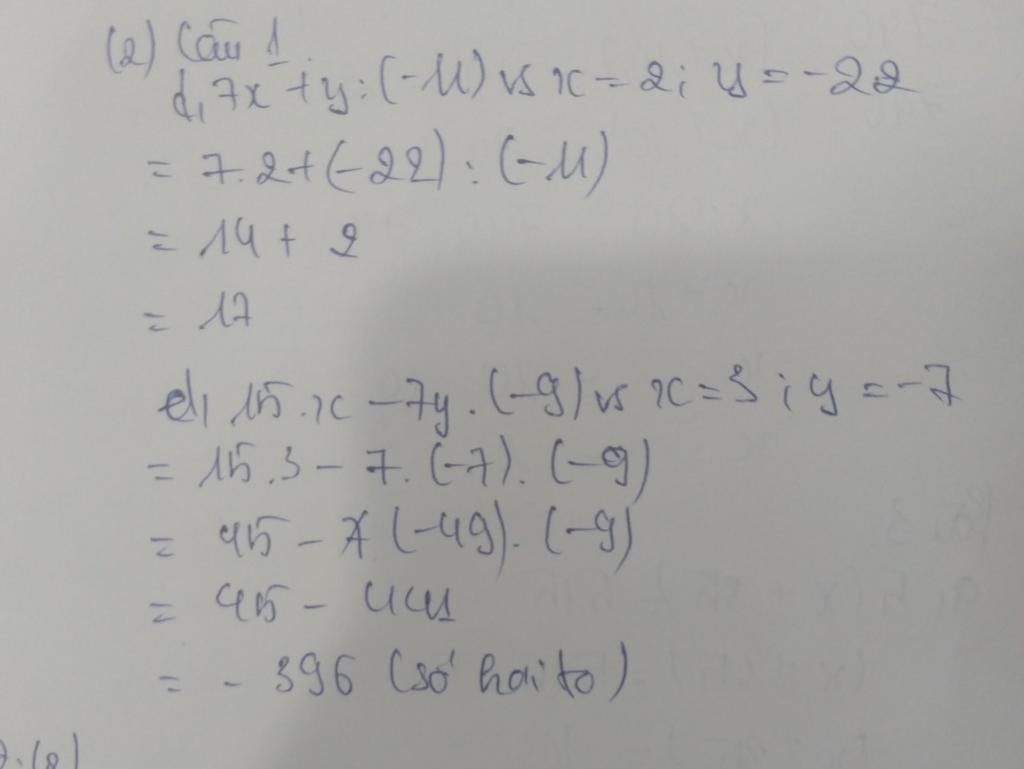 (2) Câu 1
d, 7x + y : (-11) vs x = 2 ; y = -22
= 7.2 + (-22) : (-11)
= 14 + 2
= 17
e, 15.x - 7y . (-9) vs x = 3 ; y = -7
= 15.3 - 7. (-7). (-9)
= 45 - (-49). (-9)
= 45 - 441
= - 396 (số hơi to)